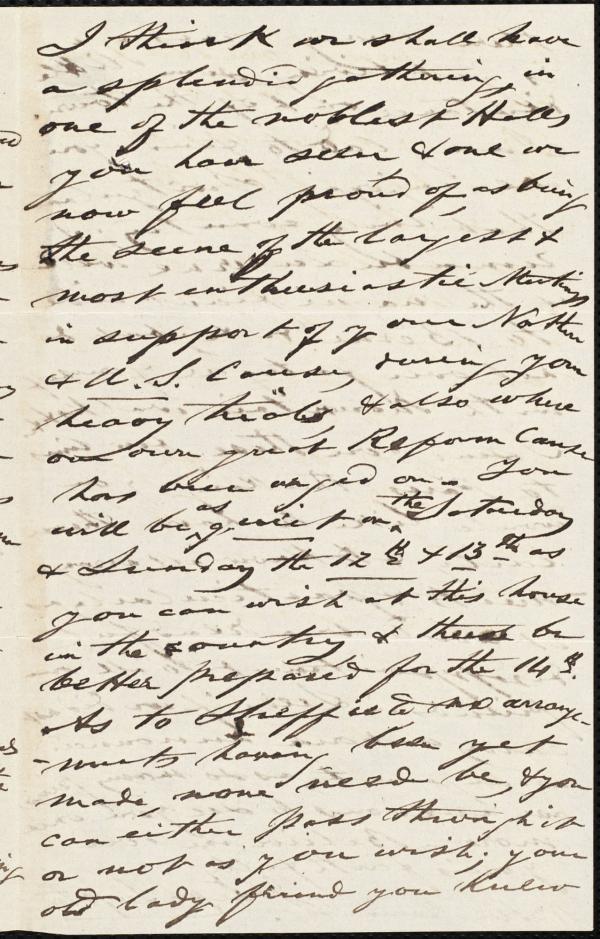 I think we shall have
a splendid gathering, in
one of the noblest Halls
you have seen & one we
now feel proud of, as being
the scene of the largest &
most enthusiastic Meetings
in support of your Nation
& A. S. Cause, during your
heavy trials, & also where
our own great Reform Cause
has been urged on. You
will be as quiet on the Saturday
& Sunday the 12th & 13th as
you can wish at this house
in the country & thus be
better prepared for the 14th.
As to Sheffield no arrange-
-ments having been yet
made, none need be, & you
can either pass through it
or not as you wish; your
old lady friend you knew